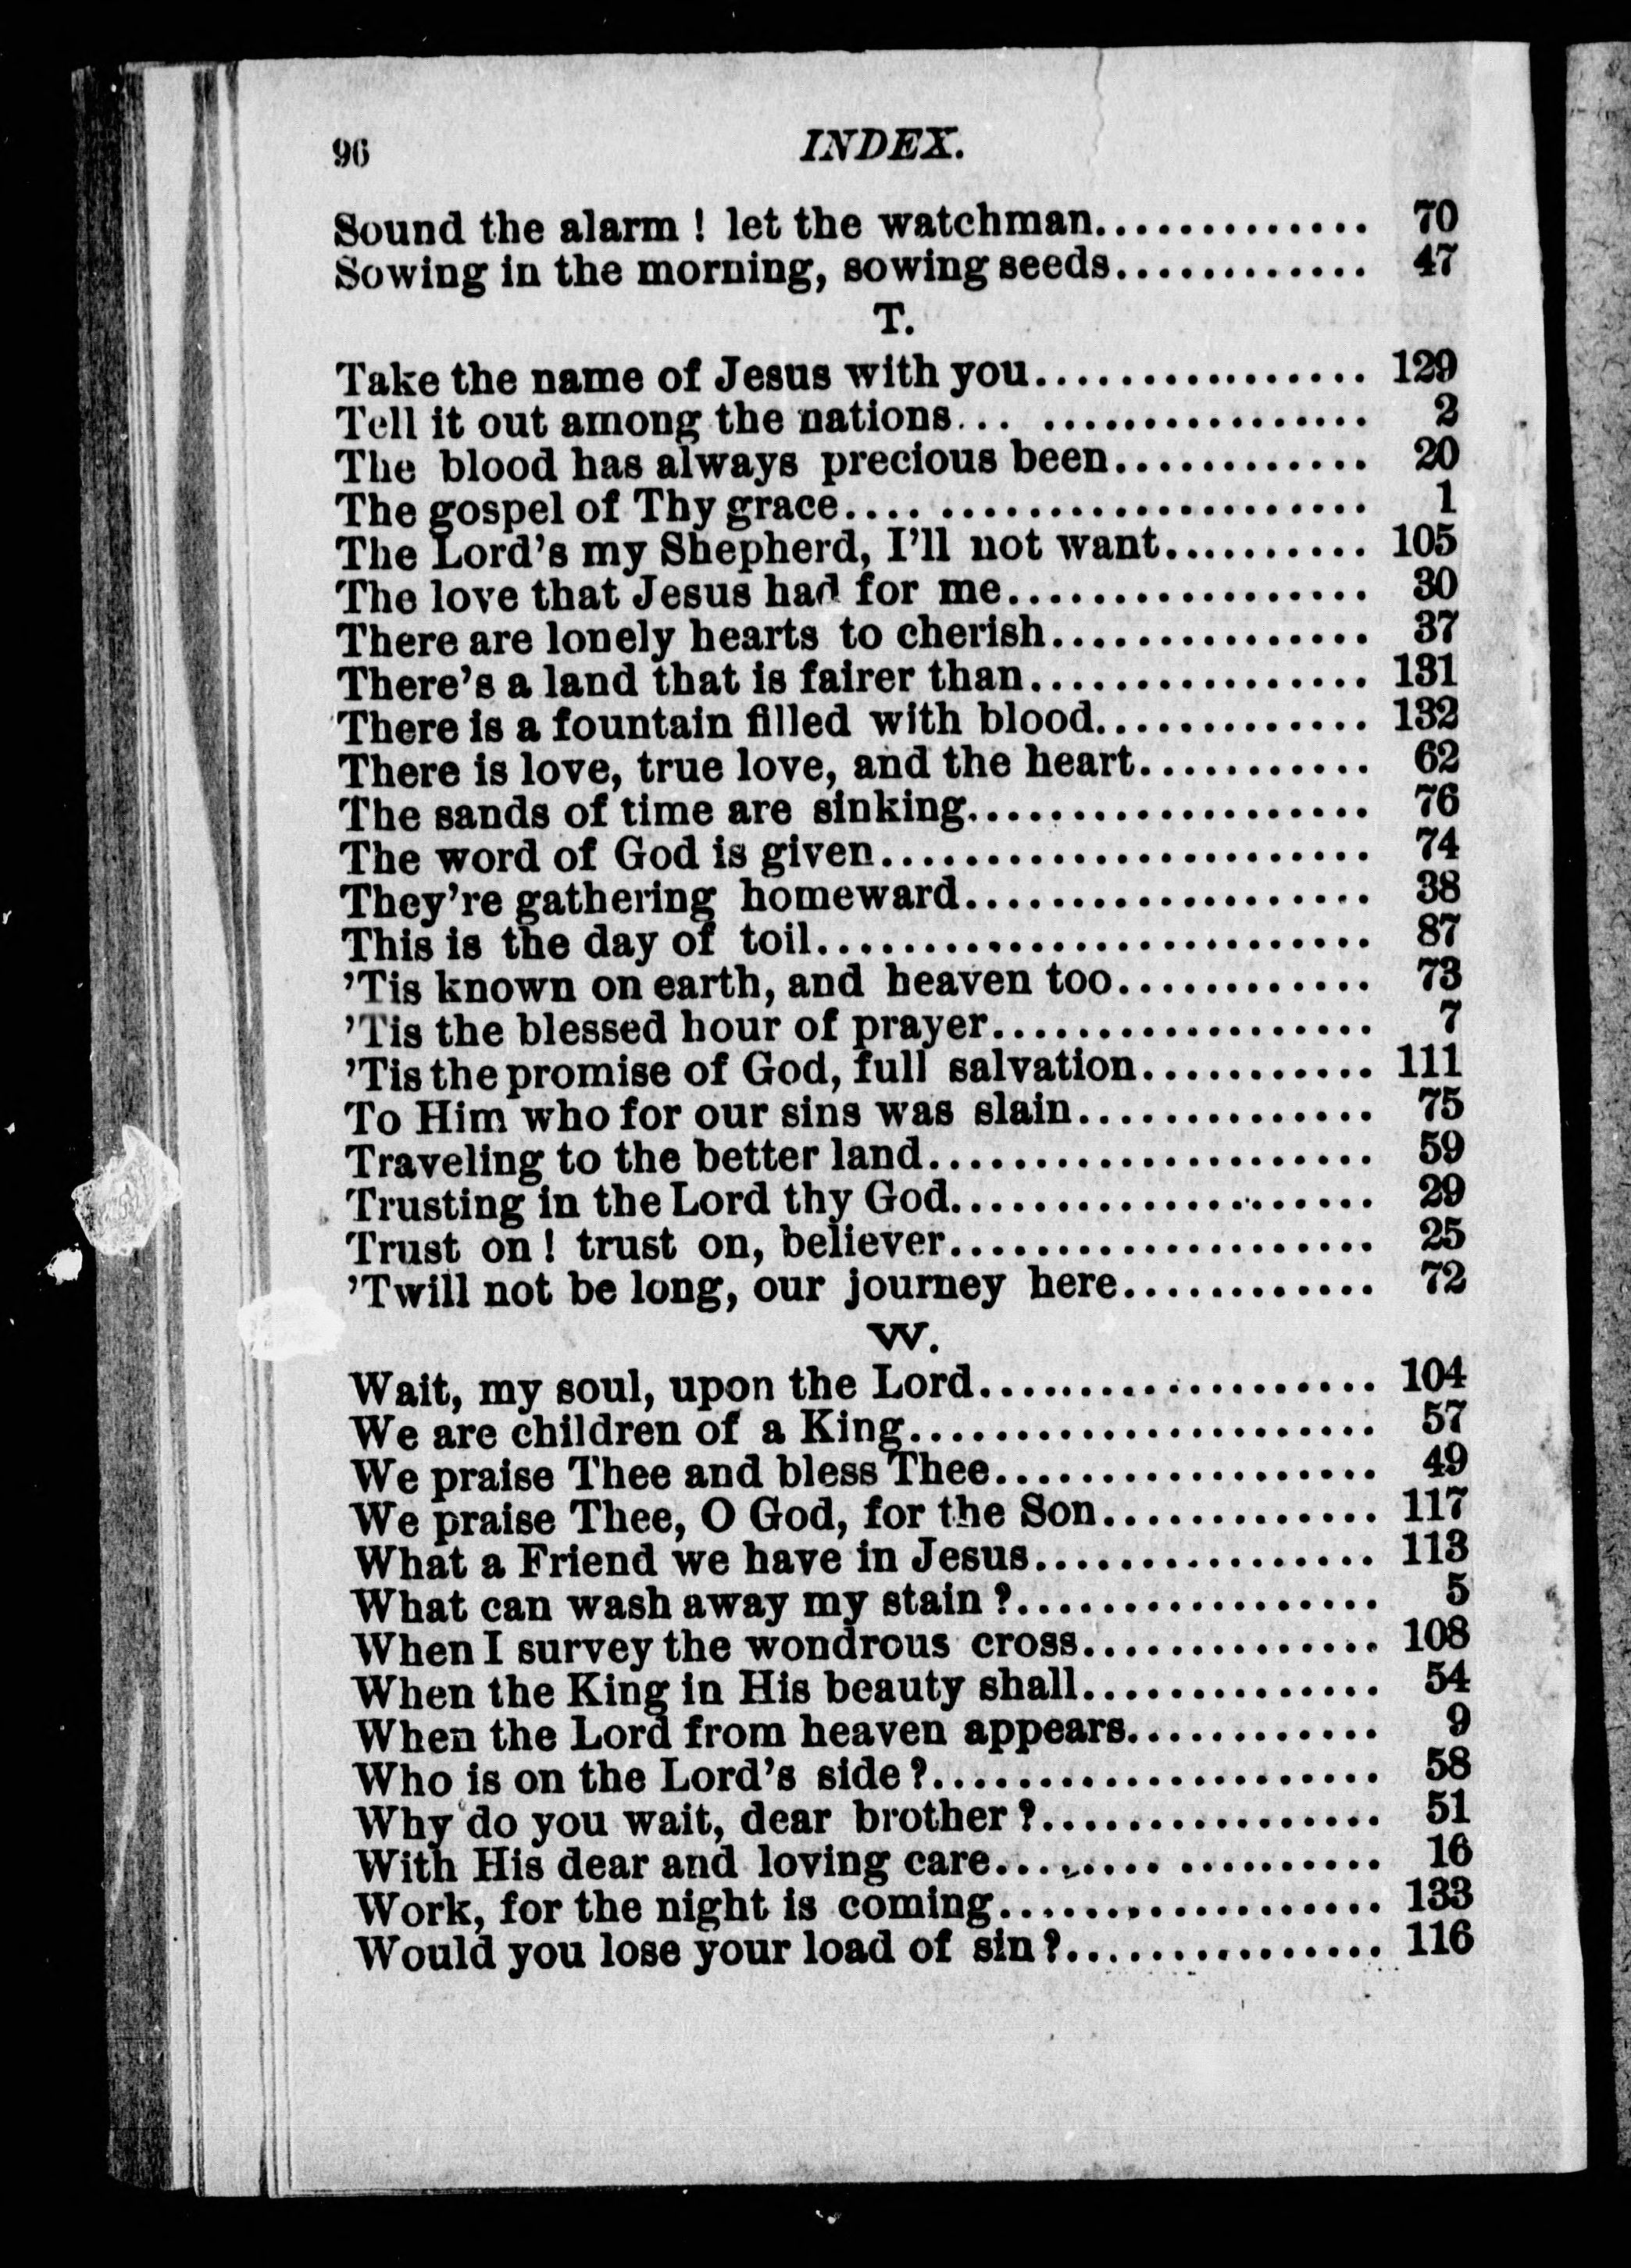 96 INDEX.
Sound the alarm ! let the watchman............. 70
Sowing in the morning, sowing seeds............ 47
T.
Take the name of Jesus with you................ 129
Tell it out among the nations... ................ 2
The blood has always precious been............ 20
The gospel of Thy grace.... .................... 1
The Lord's my Shepherd, I'll not want.......... 105
The love that Jesus had for me................. 30
There are lonely hearts to cherish............... 37
There's a land that is fairer than................ 131
There is a fountain filled with blood............. 132
There is love, true love, and the heart........... 62
The sands of time are sinking................... 76
The word of God is given....................... 74
They're gathering homeward................... 38
This is the day of toil.......................... 87
'Tis known on earth, and heaven too............ 73
'Tis the blessed hour of prayer.................. 7
'Tis the promise of God, full salvation........... 111
To Him who for our sins was slain.............. 75
Traveling to the better land..................... 59
Trusting in the Lord thy God.................... 29
Trust on ! trust on, believer.................... 25
'Twill not be long, our journey here............ 72
W.
Wait, my soul, upon the Lord................... 104
We are children of a King...................... 57
We praise Thee and bless Thee.................. 49
We praise Thee, O God, for the Son............. 117
What a Friend we have in Jesus................ 113
What can wash away my stain ?................. 5
When I survey the wondrous cross.............. 108
When the King in His beauty shall.............. 54
When the Lord from heaven appears............ 9
Who is on the Lord's side ?..................... 58
Why do you wait, dear brother ?................ 51
With His dear and loving care........ .......... 16
Work, for the night is coming.................. 133
Would you lose your load of sin ?............... 116